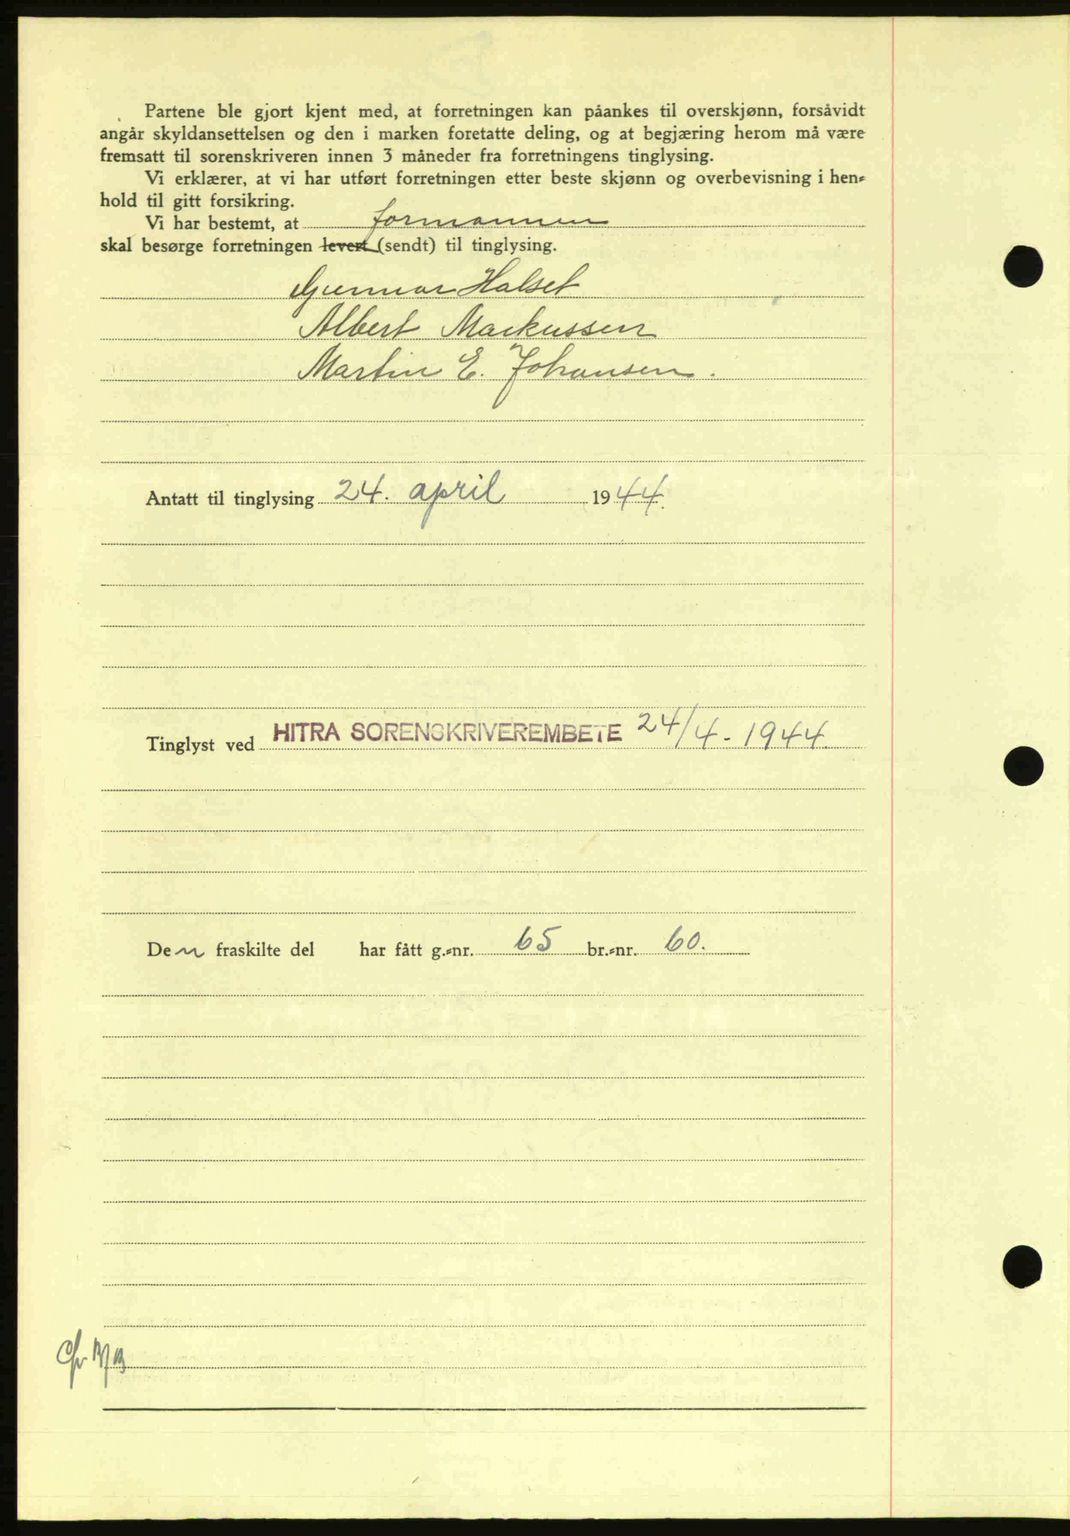 Partene ble gjort kjent med, at forretningen kan påankes til overskjønn, forsåvidt
angår skyldansettelsen og den i marken foretatte deling, og at begjæring herom må være
fremsatt til sorenskriveren innen 3 måneder fra forretningens tinglysing.
Vi erklærer, at vi har utført forretningen etter beste skjønn og overbevisning i hen-
hold til gitt forsikring.
Vi har bestemt, at formannen
skal besørge forretningen levert (sendt) til tinglysing.
Gunnar Halset
Albert Markussen
Martin E. Johansen.
Antatt til tinglysing 24. april 1944.
Tinglyst ved HITRA SORENSKRIVEREMBETE 24/4-1944.
Den fraskilte del har fått g.-nr. 65 br.-nr. 60.